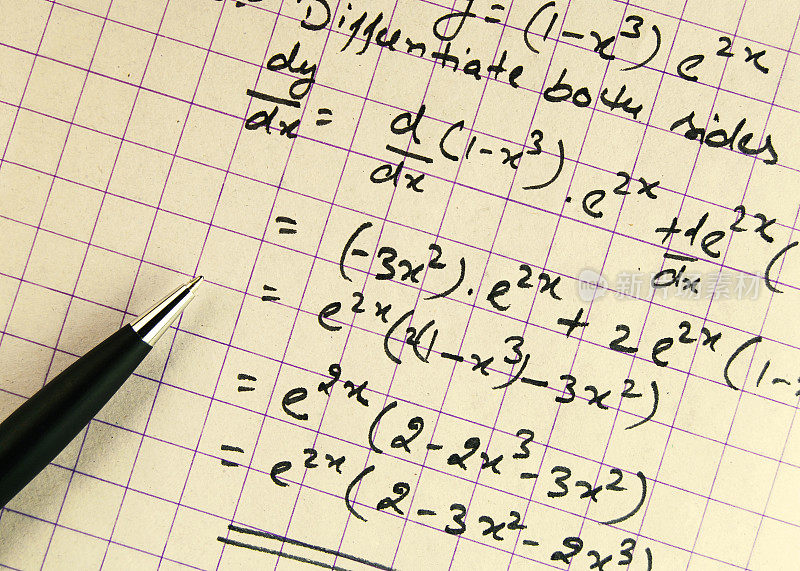 y = (1-x³) e²ˣ
Differentiate both sides
dy/dx = d/dx (1-x³) . e²ˣ + d/dx e²ˣ (
= (-3x²) . e²ˣ + 2e²ˣ (1-
= e²ˣ (2(1-x³) - 3x²)
= e²ˣ (2 - 2x³ - 3x²)
= e²ˣ (2 - 3x² - 2x³)